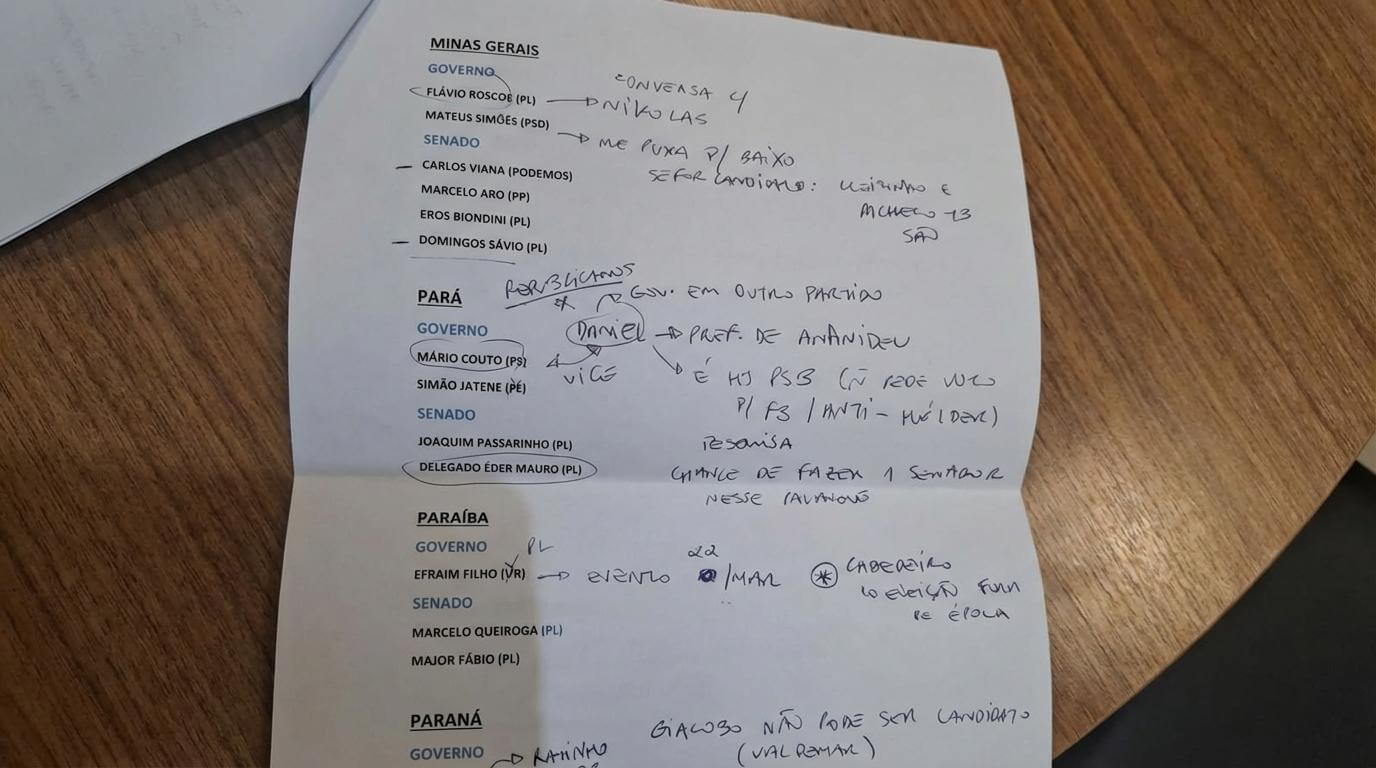 MINAS GERAIS
GOVERNO
FLÁVIO ROSCOE (PL)
CONVERSA
NIKOLAS
MATEUS SIMÕES (PSD)
ME PUXA P/ BAIXO
SENADO
SE FOR CANDIDATO: CLEITINHO E
PACHECO 13
SÃO
CARLOS VIANA (PODEMOS)
MARCELO ARO (PP)
EROS BIONDINI (PL)
DOMINGOS SÁVIO (PL)
PARÁ
REPUBLICANOS
GOV. EM OUTRO PARTIDO
GOVERNO
DANIEL → PREF. DE
MÁRIO COUTO
VICE
É HJ PSB (Ñ PEDE VOTO
P/ FB / ANTI-HÉLDER)
SIMÃO JATENE
SENADO
JOAQUIM PASSARINHO (PL)
PESQUISA
DELEGADO ÉDER MAURO (PL)
CHANCE DE FAZER 1 SENADOR
NESSE PALANQUE
PARAÍBA
GOVERNO
PL
EFRAIM FILHO → EVENTO 22/MAR
* CABEDELO
ELEIÇÃO FORA
DE ÉPOCA
SENADO
MARCELO QUEIROGA (PL)
MAJOR FÁBIO (PL)
PARANÁ
GIACOBO NÃO PODE SER CANDIDATO
(VALDEMAR)
GOVERNO
RATINHO